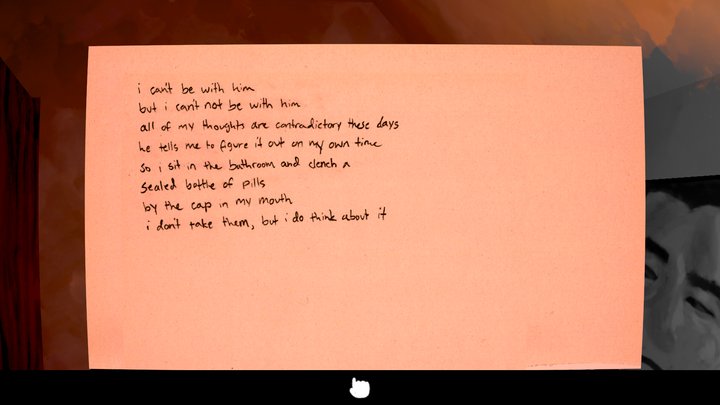 i can't be with him
but i can't not be with him
all of my thoughts are contradictory these days
he tells me to figure it out on my own time
so i sit in the bathroom and clench a
sealed bottle of pills
by the cap in my mouth
i don't take them, but i do think about it